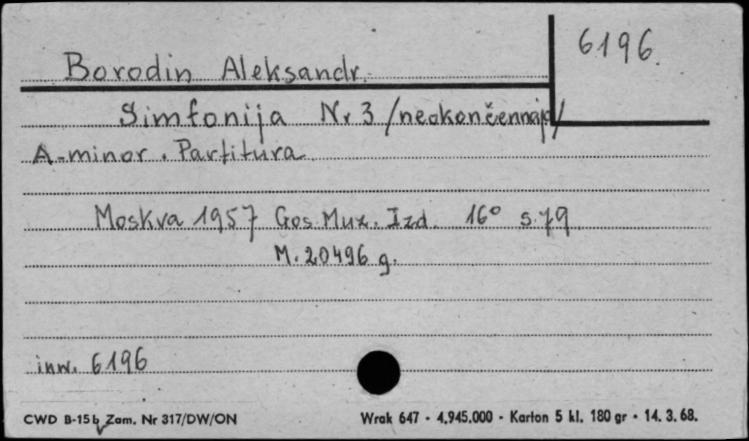 6196.
Borodin Aleksandr.
Simfonija Nr 3 /neokončennaja/
A-minor. Partitura
Moskva 1957 Gos. Muz. Izd. 16° s. 79
M. 20496 g.
inw. 6196
CWD B-15b Zam. Nr 317/DW/ON
Wrak 647 - 4.945.000 - Karton 5 kl. 180 gr - 14. 3. 68.